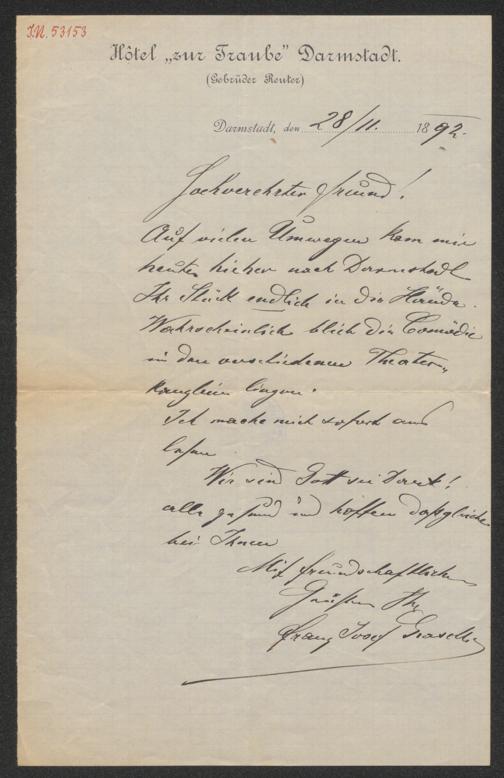 I.N. 53153
Hôtel „zur Traube" Darmstadt.
(Gebrüder Reuter)
Darmstadt, den 28/11. 1892.
Hochverehrter Freund!
Auf vielen Umwegen kam mir
heute hieher nach Darmstadt
Ihr Stück endlich in die Hände.
Wahrscheinlich blieb die Comödie
in den verschiedenen Theater-
kanzleien liegen.
Ich mache mich sofort ans
lesen.
Wir sind Gott sei Dank!
alle gesund und hoffen dasgleiche
bei Ihnen
Mit freundschaftlichen
Grüßen Ihr
Franz Josef Graselli